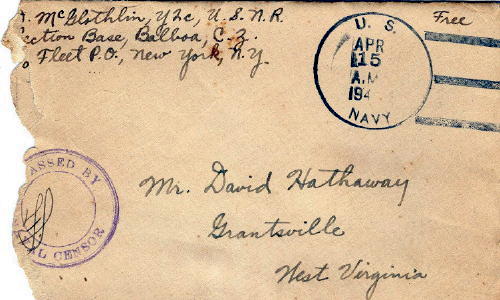 . McGlothlin, Y2c, U.S.N.R.
ection Base, Balboa, C.Z.
Fleet P.O., New York, N.Y.
Free
U. S.
APR
15
A.M
194
NAVY
ASSED BY
L CENSOR
Mr. David Hathaway
Grantsville
West Virginia